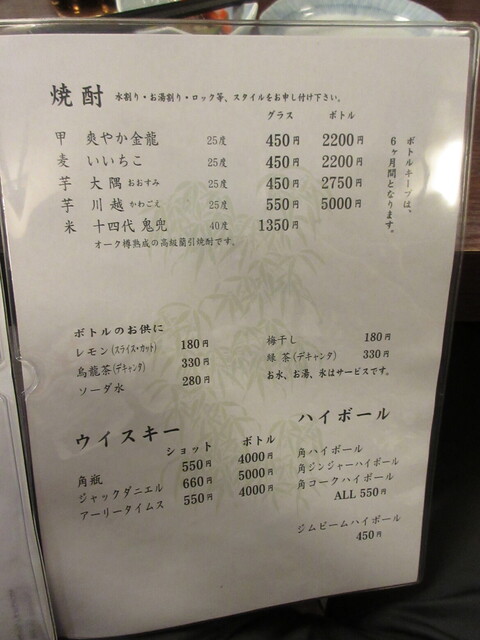 焼酎 水割り・お湯割り・ロック等、スタイルをお申し付け下さい。
グラス ボトル
甲 爽やか金龍 25度 450円 2200円
麦 いいちこ 25度 450円 2200円
芋 大隅 おおすみ 25度 450円 2750円
芋 川越 かわごえ 25度 550円 5000円
米 十四代 鬼兜 40度 1350円
オーク樽熟成の高級蘭引焼酎です。
ボトルキープは、
6ヶ月間となります。
ボトルのお供に
レモン(スライス・カット) 180円
烏龍茶(デキャンタ) 330円
ソーダ水 280円
梅干し 180円
緑茶(デキャンタ) 330円
お水、お湯、氷はサービスです。
ウイスキー
ショット ボトル
角瓶 550円 4000円
ジャックダニエル 660円 5000円
アーリータイムス 550円 4000円
ハイボール
角ハイボール
角ジンジャーハイボール
角コークハイボール
ALL 550円
ジムビームハイボール
450円